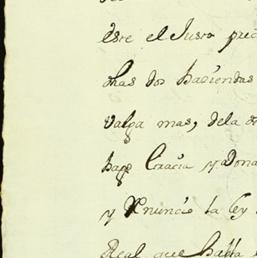 este el Justo prec
dhas dos haciendas
valga mas, dela d
hago Gracia y Dona
y Renuncio la Ley
Real que habla